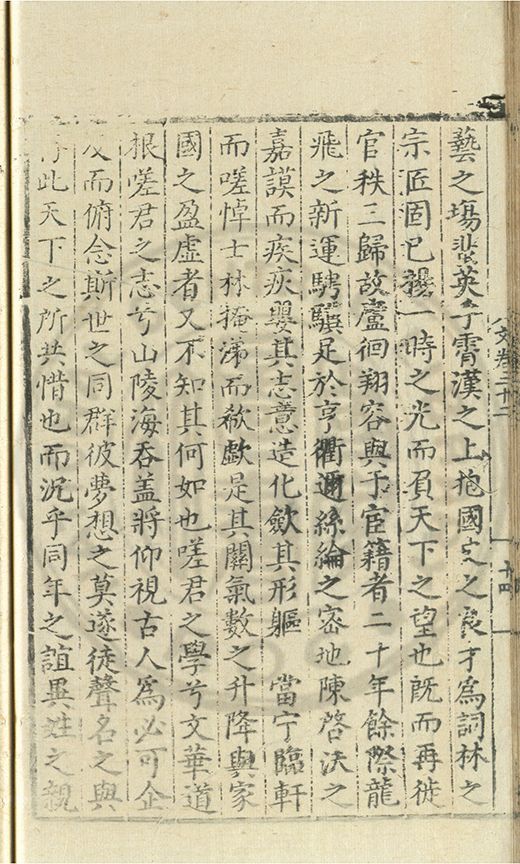 藝之塲蜚英乎霄漢之上抱國史之良才爲詞林之
宗匠固已擅一時之光而負天下之望也旣而再徙
官秩三歸故廬徊翔容與于宦籍者二十年餘際龍
飛之新運騁驥足於亨衢邇絲綸之密地陳啓沃之
嘉謨而疾疢嬰其志意造化歛其形軀　當宁臨軒
而嗟悼士林掩涕而欷歔是其關氣數之升降與家
國之盈虛者又不知其何如也嗟君之學兮文華道
根嗟君之志兮山陵海吞盖將仰視古人爲必可企
及而俯念斯世之同群彼夢想之莫遂徒聲名之與
此天下之所共惜也而况乎同年之誼異姓之親
文卷二十二
十四